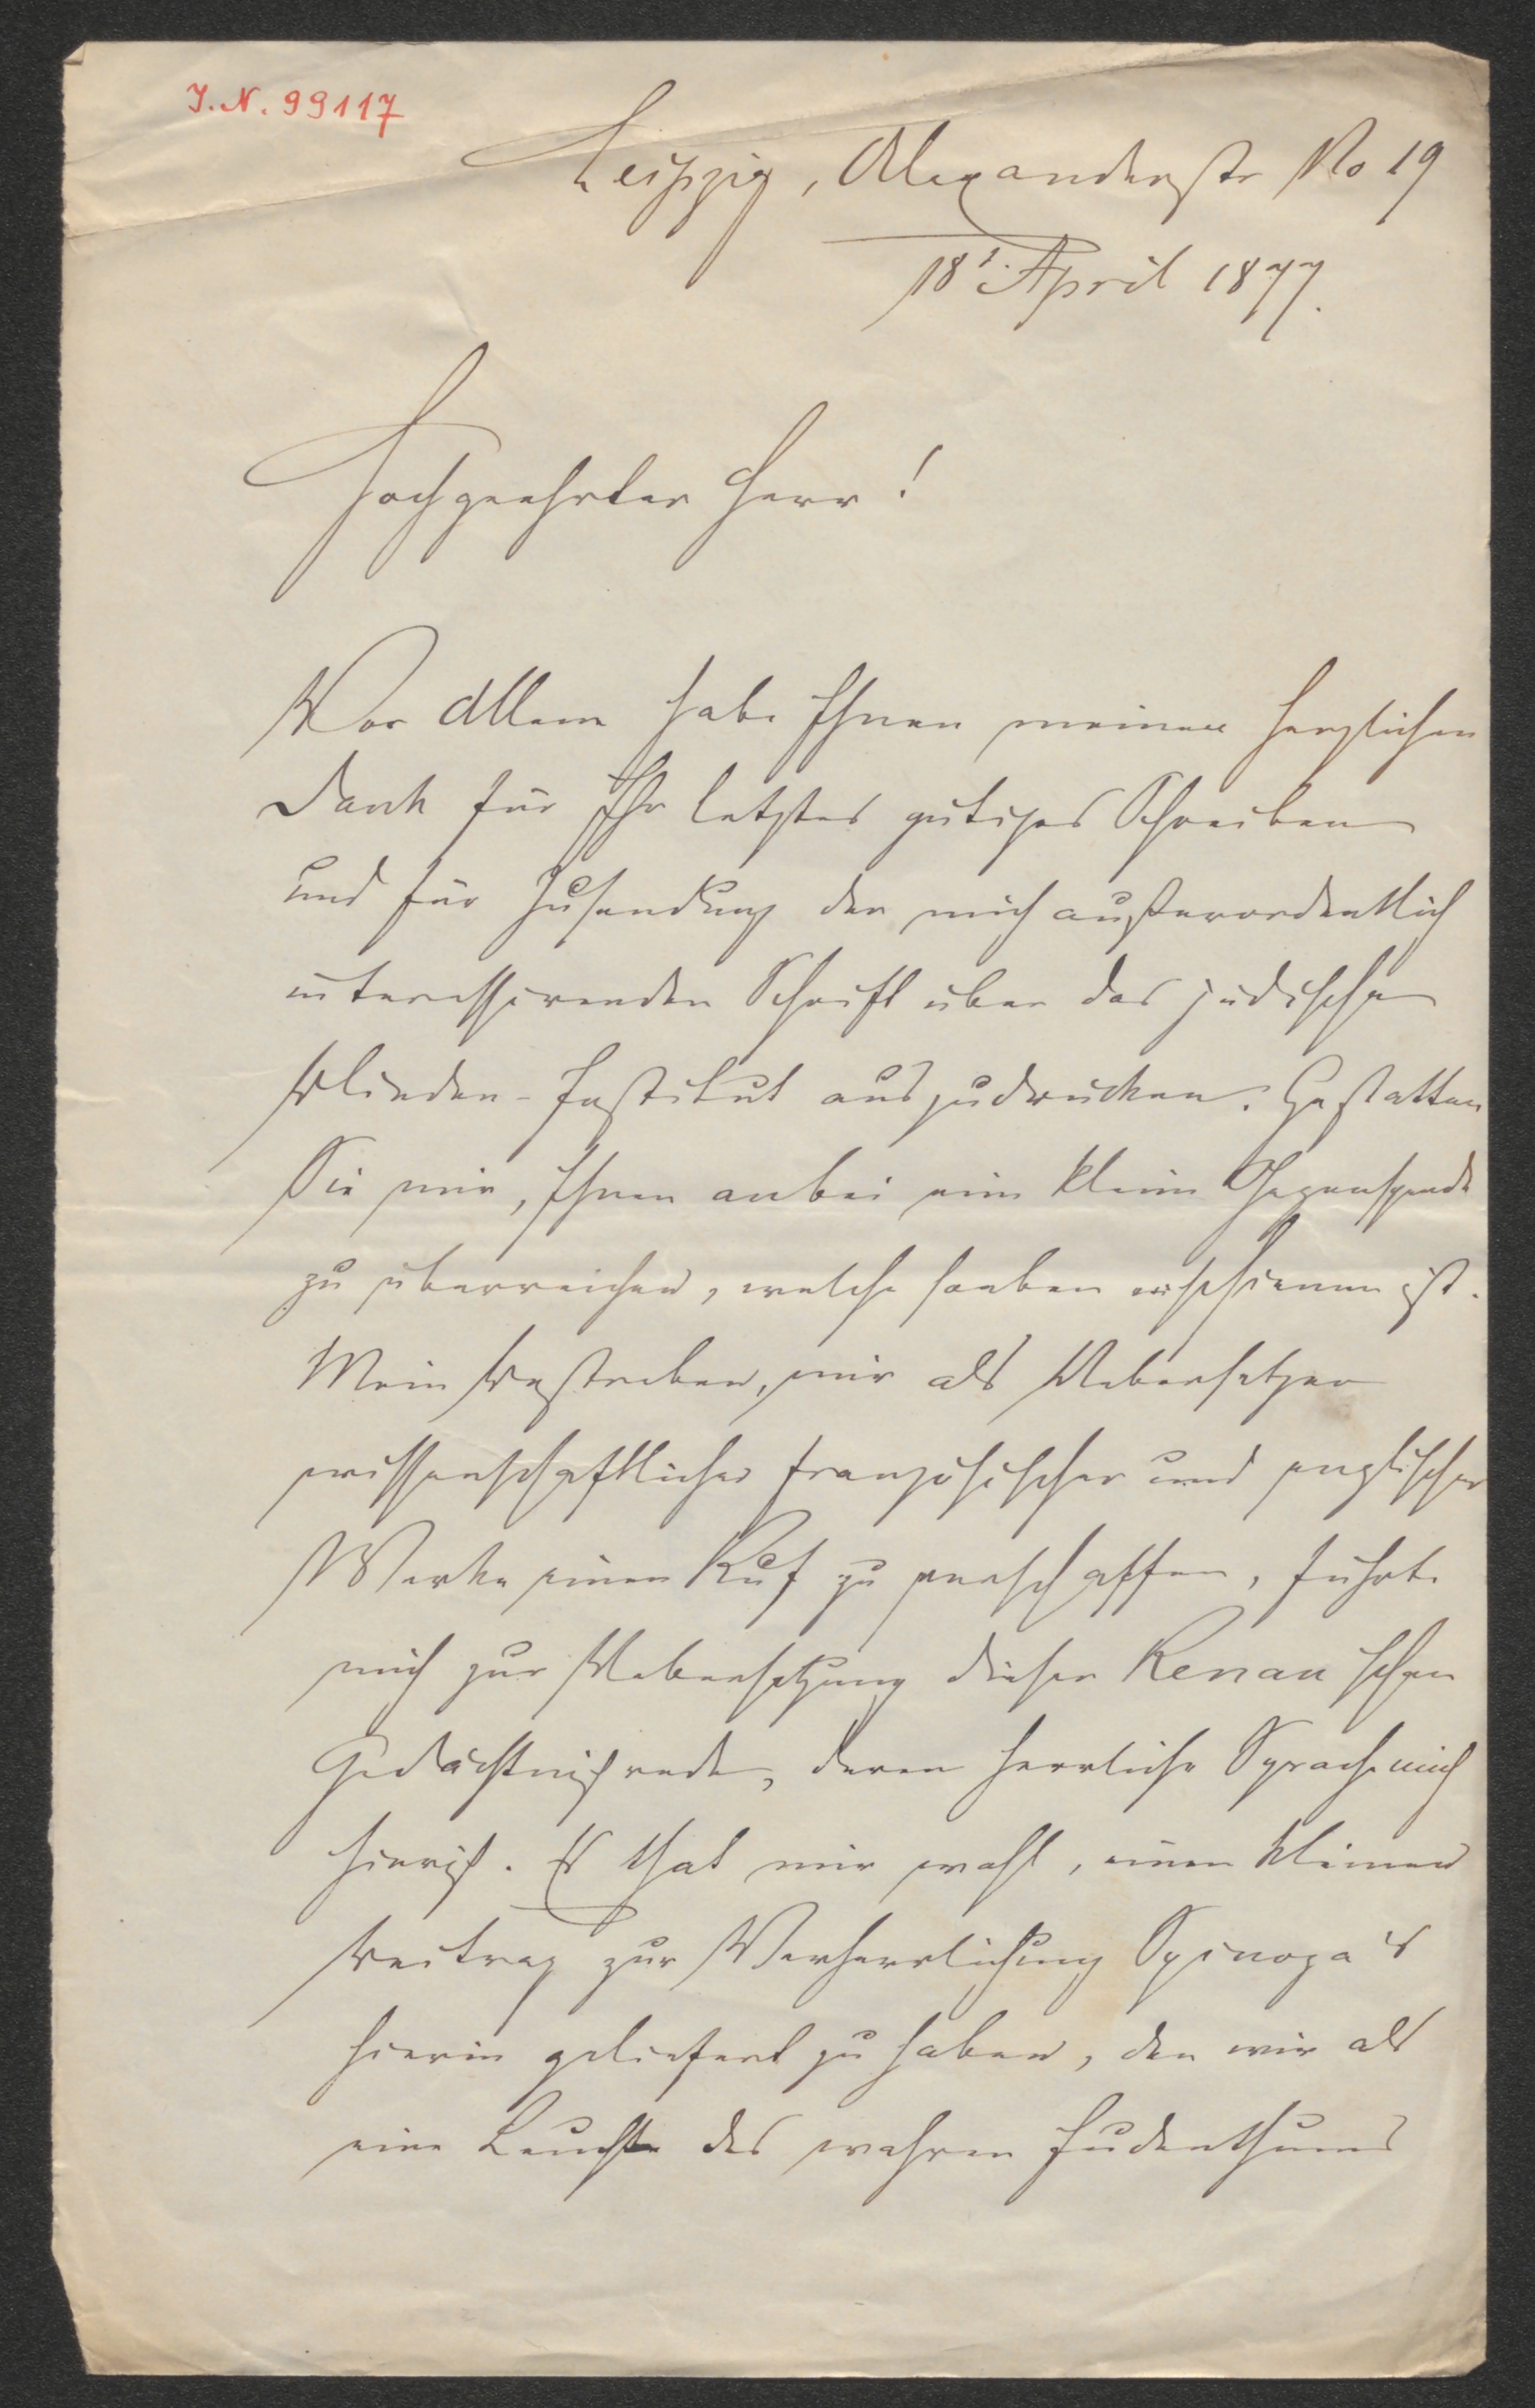 J. N. 99117
Leipzig, Alexanderstr No 19
18t. April 1877.
Hochgeehrter Herr!
Vor Allem habe Ihnen meinen herzlichen
Dank für Ihr letztes gütiges Schreiben
und für Zusendung der mich außerordentlich
interessirenden Schrift über das jüdische
Blinden-Institut auszudrücken. Gestatten
Sie mir, Ihnen anbei eine kleine Gegenspende
zu überreichen, welche soeben erschienen ist.
Mein Bestreben, mir als Uebersetzer
wissenschaftlicher französischer und englischer
Werke einen Ruf zu verschaffen, führte
mich zur Uebersetzung dieser Renan'schen
Gedächtnißrede, deren herrliche Sprache mich
hinriß. Es that mir wohl, einen kleinen
Beitrag zur Verherrlichung Spinoza's
hierin geliefert zu haben, den wir als
eine Leuchte des wahren Judenthums